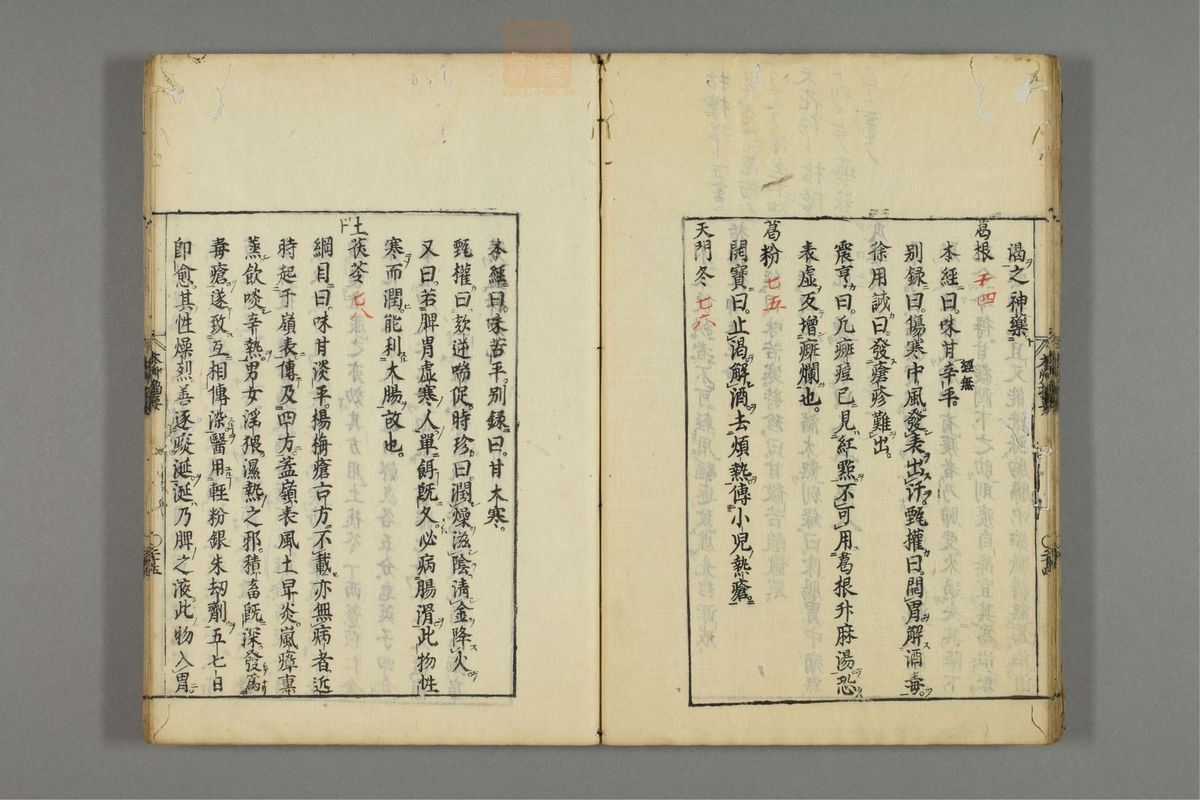 渴之神藥
葛根 七四
本經曰。味甘辛平。經無
別録曰。傷寒中風發表出汗。甄權曰。開胃解酒毒。
徐用誠曰。發瘡疹難出。
震亨曰。凡癍痘已見紅點不可用葛根升麻湯恐
表虛反增癍爛也。
葛粉 七五
開寶曰。止渴解酒去煩熱傅小兒熱瘡。
天門冬 七六
本經曰。味苦平。別録曰。甘大寒。
甄權曰。欬逆喘促。時珍曰。潤燥滋陰淸金降火
又曰。若脾胃虛寒人單餌旣久。必病腸滑此物性
寒而潤。能利大腸故也。
土茯苓 七八
綱目曰。味甘淡平。楊梅瘡古方不載亦無病者近
時起于嶺表傳及四方蓋嶺表風土旱炎嵐瘴熏
蒸飲啖辛熱男女淫猥。濕熱之邪積畜旣深發爲
毒瘡遂致互相傳染醫用輕粉銀朱劫劑五七日
即愈其性燥烈善逐痰涎涎乃脾之液此物入胃